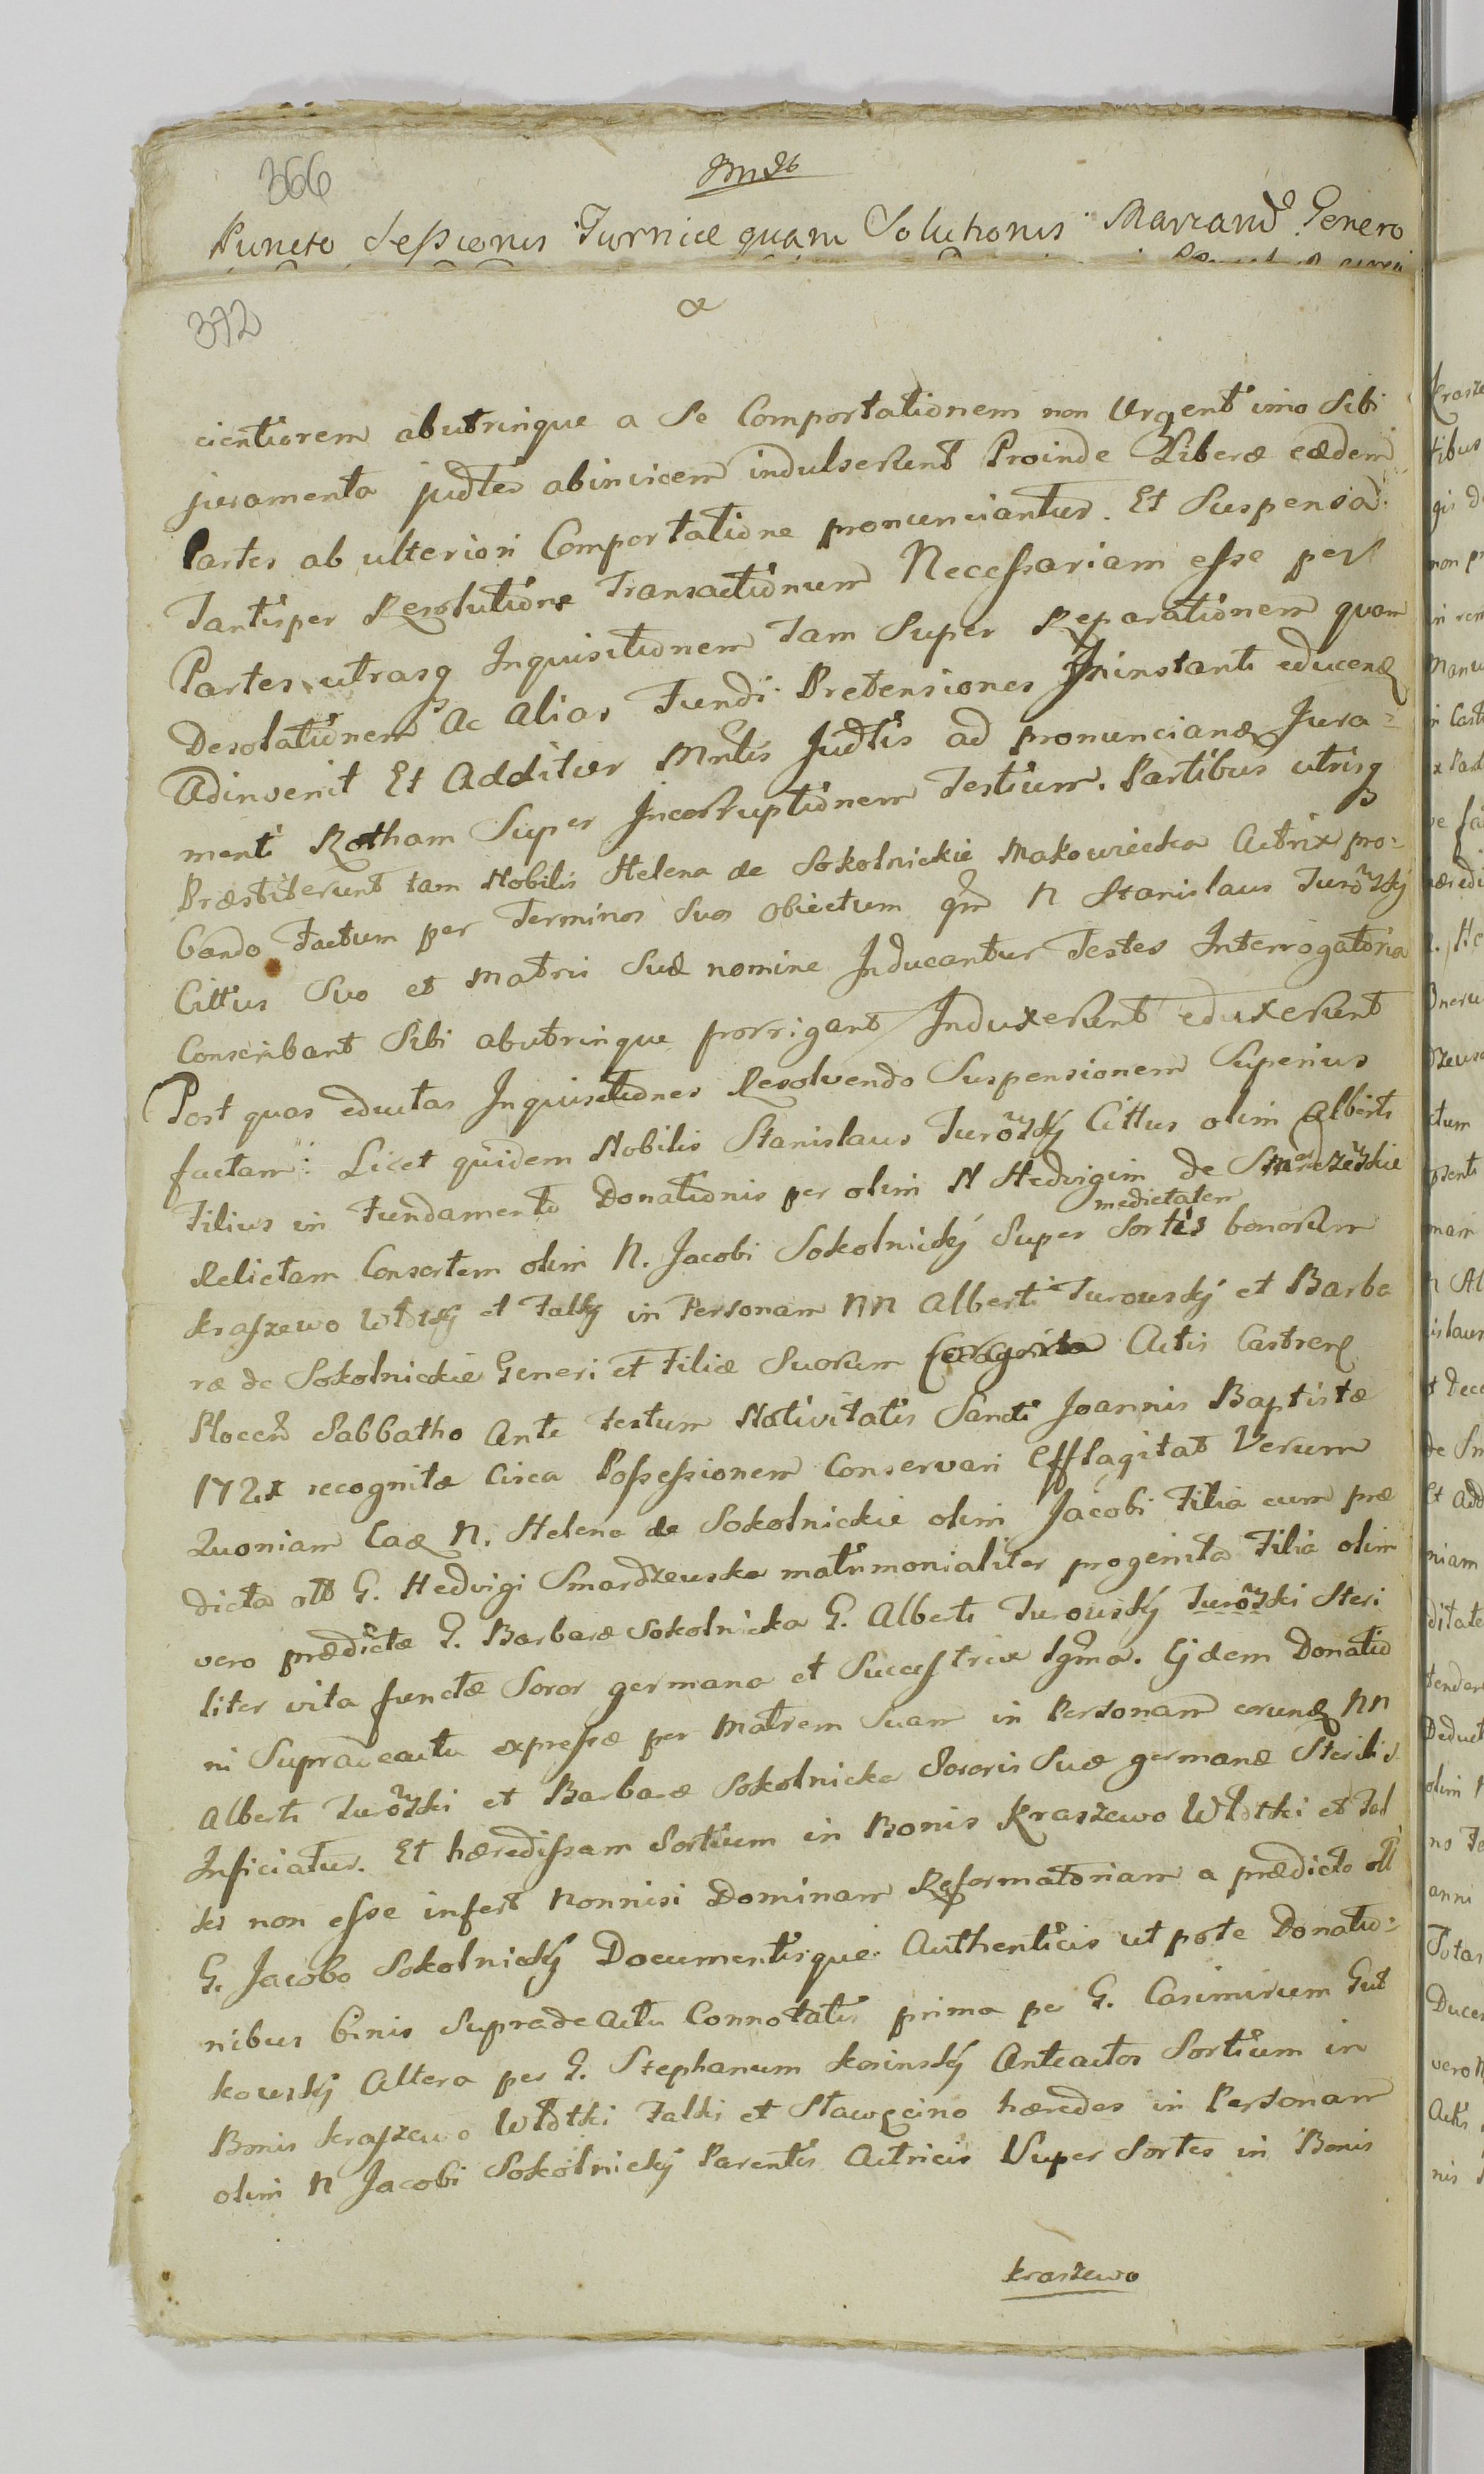 366
Puncto Sessionis Turniæ quam Solutionis Marcarū Genero
392
cientiorem abutrinque a Se Comportationem non Urgent imo Sibi
juramenta judter abinvicem indulserunt Proinde Liberæ eædem
Partes ab ulteriori Comportatione pronunciantur. Et Suspensa
Tantisper Resolutione Transactionum Necessariam esse per
Partes utrasq Inquisitionem Tam Super Reparationem quam
Desolationem Ac Alias Fundi Pretensiones Ininstanti educend
Adinvenit Et Additur Mntis Judtis ad pronunciand Jura-
menti Rotham Super Incorruptionem Testium. Partibus utrisq
Præstiterunt tam Nobilis Helena de Sokolnickie Makowiecka Actrix pro-
bando Factum per Terminos Suos Obiectum qm N Stanislaus Turowsky
Cittus Suo et Matris Suæ nomine Inducantur Testes Interrogatoria
Conscribant Sibi abutrinque porrigant Induxerunt eduxerunt
Post quas eductas Inquisitiones Resolvendo Suspensionem Superius
factam: Licet quidem Nobilis Stanislaus Turowsky Cittus olim Alberti
Filius in Fundamento Donationis per olim N Hedvigim de Smardzewskie
medietatem
Relictam Consortem olim N. Jacobi Sokolnicky Super Sortis bonorum
Kraszewo Włotky et Falky in Personam NN Alberti Turowsky et Barba
ræ de Sokolnickie Generi et Filiæ Suorum Actis Castren
Plocen Sabbatho Ante Festum Nativitatis Sancti Joannis Baptistæ
172 recognitæ Circa Possessionem Conservari Efflagitat Verum
Quoniam Ead N. Helena de Sokolnickie olim Jacobi Filia cum præ
dicta G. Hedvigi Smardzewska matrimonialiter progenita Filia olim
vero prædictæ G. Barbaræ Sokolnicka G. Alberti Turowsky Turowski Steri
liter vita functæ Soror germana et Successtrix Igma. Ejdem Donatio
ni Supradeactu expressæ per Matrem Suam in Personam eorund NN
Alberti Turowski et Barbaræ Sokolnicka Sororis Suæ germanæ Sterilis
Inficiatur. Et hæredissam Sortium in Bonis Kraszewo Włotki et Fal
ki non esse infert Nonnisi Dominam Reformatoriam a prædicto
G. Jacobo Sokolnicky Documentisque Authenticis ut pote Donatio-
nibus binis Supradeactu Connotatis prima per G. Casimirum Gut
kowsky Altera per G. Stephanum Kosinsky Anteactos Sortium in
Bonis Kraszewo Włotki Falki et Sławęcino hæredes in Personam
olim N Jacobi Sokolnicky Parentis Actricis Super Sortes in Bonis
Kraszewo